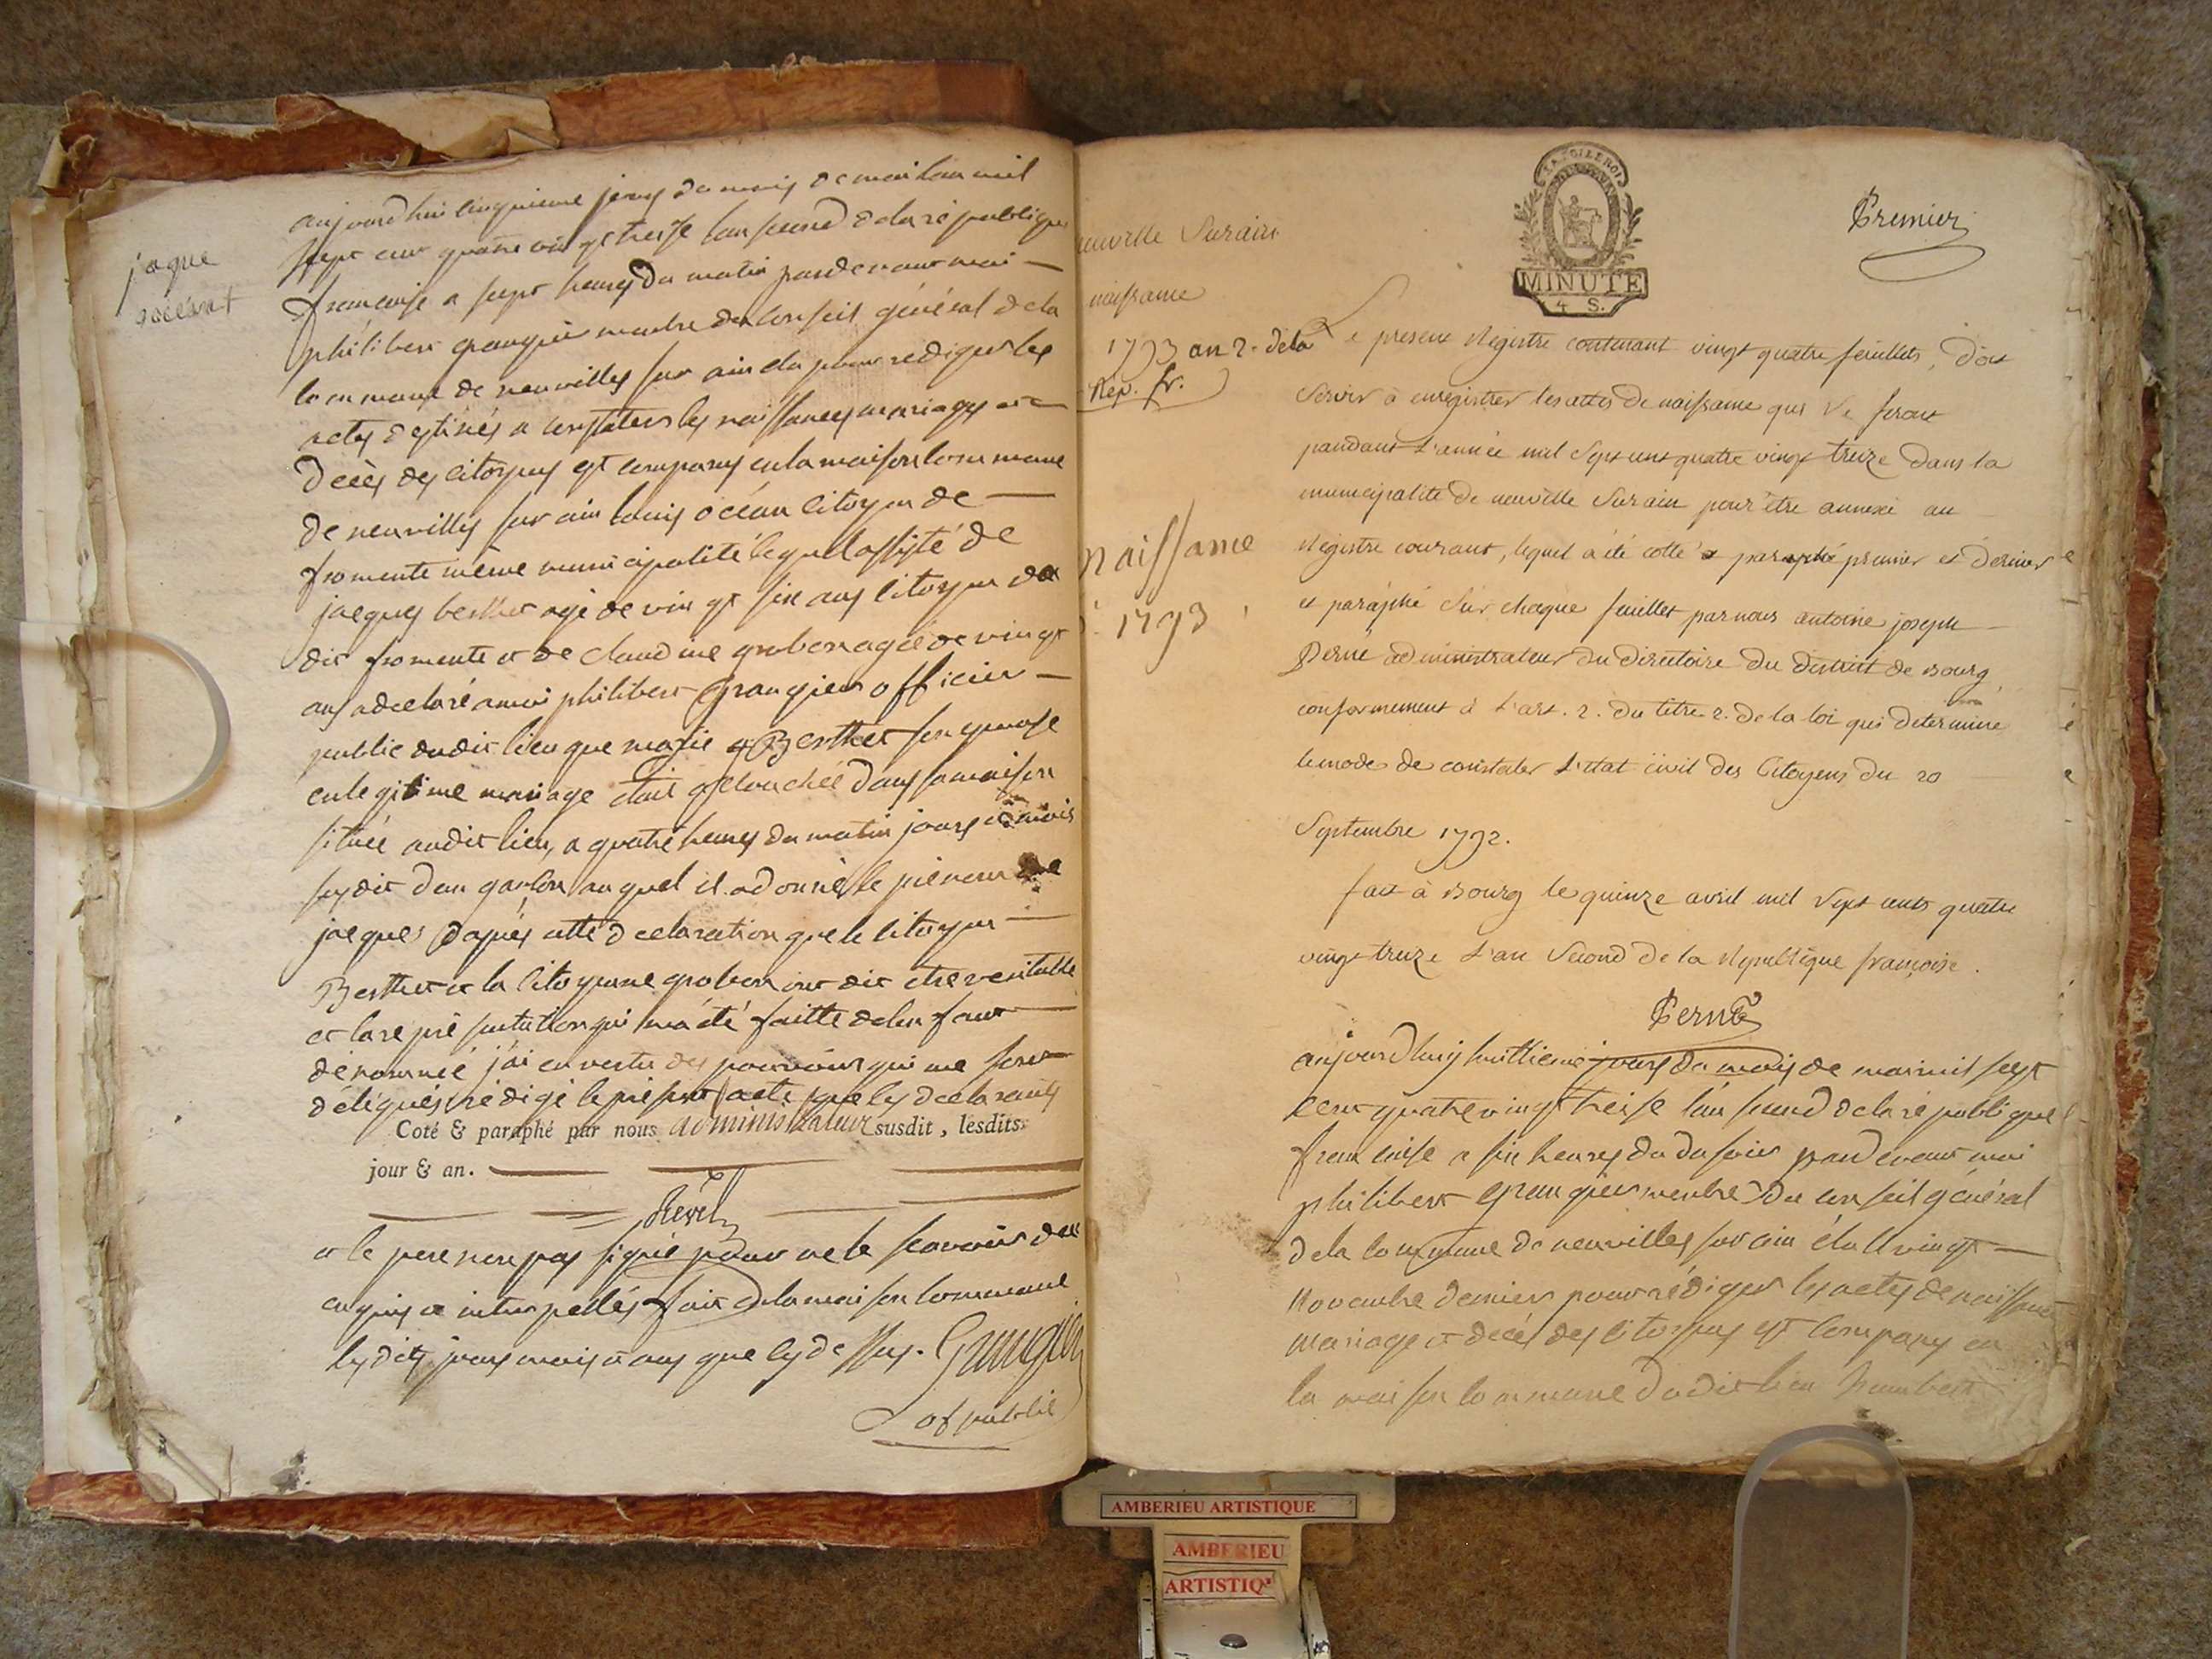 jaque
océant
aujourdhui cinquieme jour du mois de mai lan mil
sept cent quatre vingt treise lan second de la république
francaise a sept heures du matin pardevant moi
philibert grangier membre du conseil général de la
commune de neuvilles sur ain elu pour rediger les
actes destinés a constater les naissances mariages et
décès des citoyens est comparus en la maison commune
de neuvilles sur ain louis océan citoyen de
fromente même municipalité lequel assisté de
jacques berthet agé de vingt six ans citoyen du
dit fromente et de claudine grobon agée de vingt
ans a declaré a moi philibert Grangier officier
public dudit lieu que marie Berthet son epouse
en legitime mariage etait acouchée dans sa maison
située audit lieu, a quatre heures du matin jours et mois
susdit dun garson auquel il a donné le prénom de
jacques dapres cette declaration que le citoyen
Berthet et la citoyenne grobon ont dit etre veritable
et la représentation qui m'a été faitte de lenfant
dénommé j'ai en vertu des pouvoirs qui me sont
délégués rédigé le présent acte que les declarants
Coté & paraphé par nous administrateur susdit, lesdits
jour & an.
et le pere nont pas signé pour ne le scavoir de ce
enquis et interpellés fait en la maison commune
les dits jours mois et ans que cy dessus. Grangier
of public
neuville Surain
naissance
1793 an 2. de la
Rep. fr.
naissance
1793
LA LOI LE ROI
MINUTE
4 S.
Premier
Le present Registre contenant vingt quatre feuillets, doit
servir à enregistrer les actes de naissance qui se feront
pandant l'année mil sept cent quatre vingt treize dans la
municipalité de neuville Surain pour être annexé au
Registre courant, lequel a été cotté et paraphé premier et dernier
et paraphé sur chaque feuillet par nous antoine joseph
Perné administrateur du directoire du district de Bourg
conformement à l'art. 2. du titre 2. de la loi qui determine
le mode de constater l'etat civil des Citoyens du 20
Septembre 1792.
fait à Bourg le quinze avril mil sept cents quatre
vingt treize l'an Second de la Republique françoise.
Perné
aujourdhuy huittieme jours du mois de mai mil sept
cent quatre vingt treise lan second de la république
francaise a six heures du du soir pardevant moi
philibert grangier membre du conseil général
de la commune de neuvilles sur ain élu le vingt
novembre dernier pour rédiger les actes de naissance
mariage et décès des citoyens est comparus en
la maison commune dudit lieu humbert
AMBERIEU ARTISTIQUE
AMBERIEU
ARTISTIQ